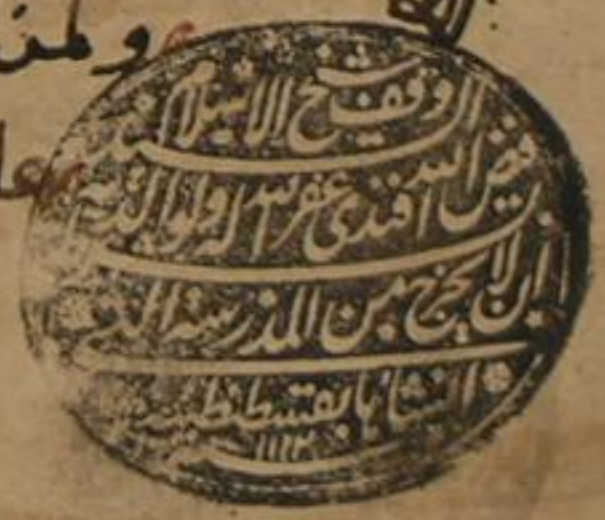 ولمن
وقف شيخ الاسلام السيد
فيض الله افندى غفر الله له ولوالديه
بشرط ان لا يخرج من المدرسة التى
انشاها بقسطنطينية
١١١٢